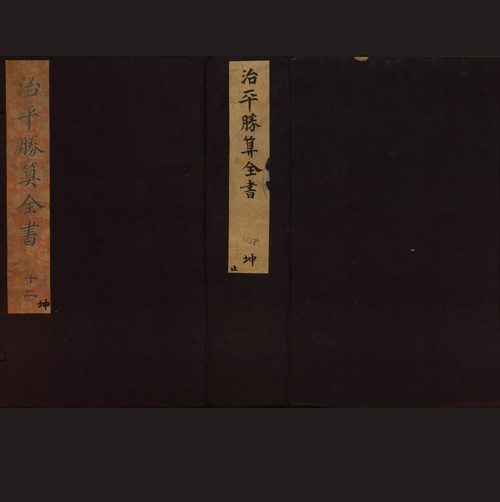 治平勝算全書
十二
坤
治平勝算全書
坤
止